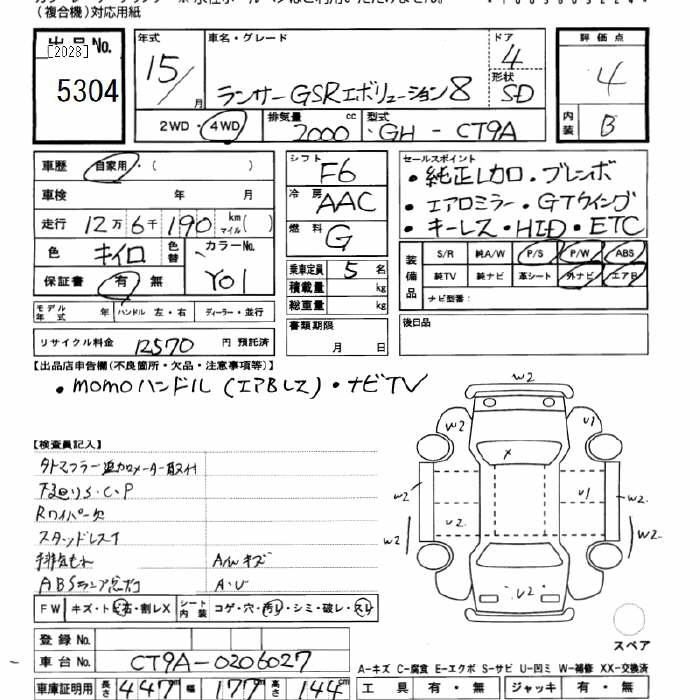 (複合機)対応用紙
出品No. [2028] 5304
年式 15/ 月
車名・グレード ランサーGSRエボリューション8
ドア 4
形状 SD
2WD・4WD
排気量 2000 cc
型式 GH-CT9A
評価点 4
内装 B
車歴 自家用・( )
車検 年 月
走行 12万6千190 km マイル( )
色 キイロ 色替
カラーNo. Y01
保証書 有 無
モデル年式 年 ハンドル 左・右 ディーラー・並行
リサイクル料金 12570 円 預託済
シフト F6
冷房 AAC
燃料 G
乗車定員 5 名
積載量 kg
総重量 kg
書類期限 月 日
セールスポイント
・純正レカロ・ブレンボ
・エアロミラー・GTウイング
・キーレス・HID・ETC
装備品 S/R 純A/W P/S P/W ABS
純TV 純ナビ 革シート 外ナビ エアB
ナビ型番:
後日品
【出品店申告欄(不良箇所・欠品・注意事項等)】
・momoハンドル(エアBレス)・ナビTV
【検査員記入】
下回りS.C.P
Rワイパー欠
スタッドレス
A/wキズ
A・U
FW キズ・トビ石・割レX シート内装 コゲ・穴・汚レ・シミ・破レ・スレ
登録No.
車台No. CT9A-0206027
車庫証明用 長さ 447 cm 幅 177 cm 高さ 144 cm
W2
W2 U1
X
W2 U1 W2
W2 U2 W2
U2
スペア
A-キズ C-腐食 E-エクボ S-サビ U-凹ミ W-補修 XX-交換済
工具 有・無 ジャッキ 有・無